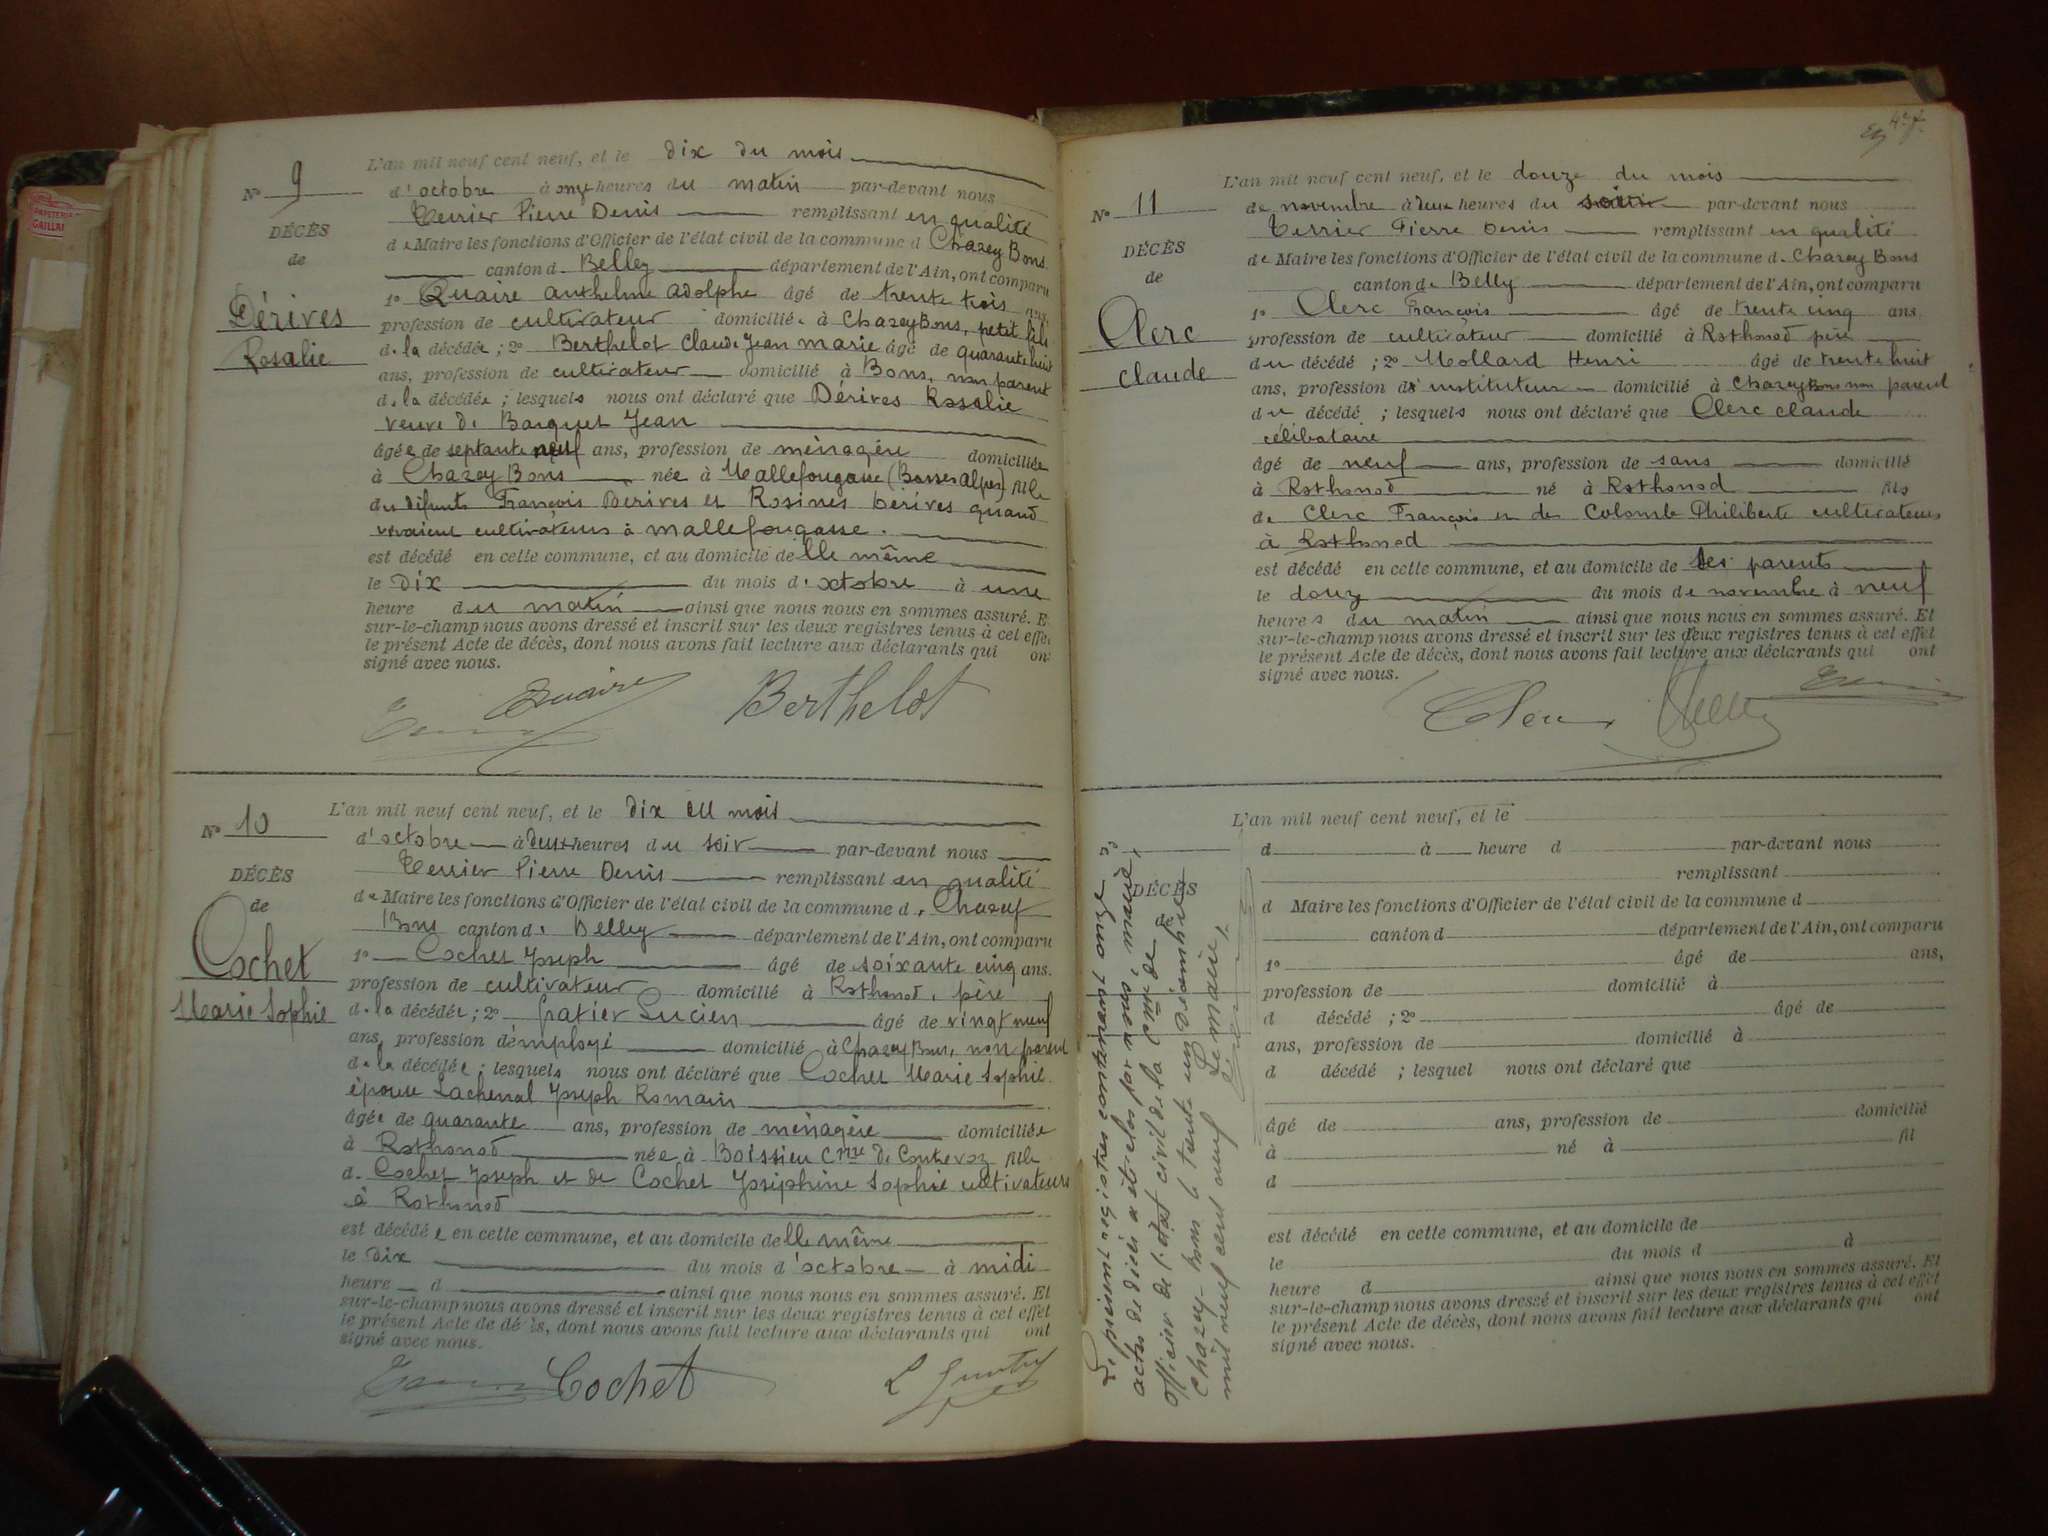 L'an mil neuf cent neuf, et le dix du mois
N° 9
d'octobre à onze heures du matin par-devant nous
Terrier Pierre Denis remplissant en qualité
DÉCÈS
de Maire les fonctions d'Officier de l'état civil de la commune d Chazey Bons
de
canton d. Belley département de l'Ain, ont comparu
1° Quaire Anthelme Adolphe âgé de trente trois ans,
Dérives
profession de cultivateur domicilié à Chazey Bons, petit fils
Rosalie
d. la décédée ; 2° Berthelot Claude Jean Marie âgé de quarante huit
ans, profession de cultivateur domicilié à Bons, non parent
d. la décédée ; lesquels nous ont déclaré que Dérives Rosalie
veuve de Barquet Jean
âgée de septante neuf ans, profession de ménagère domiciliée
à Chazey Bons née à Mallefougasse (Basses Alpes) fille
des défunts François Dérives et Rosines Dérives quand
vivaient cultivateurs à mallefougasse.
est décédé en cette commune, et au domicile de lle même
le dix du mois d'octobre à une
heure du matin ainsi que nous nous en sommes assuré. Et
sur-le-champ nous avons dressé et inscrit sur les deux registres tenus à cet effet
le présent Acte de décès, dont nous avons fait lecture aux déclarants qui ont
signé avec nous.
Quaire Berthelot
L'an mil neuf cent neuf, et le dix du mois
N° 10
d'octobre à deux heures du soir par-devant nous
Terrier Pierre Denis remplissant en qualité
DÉCÈS
de Maire les fonctions d'Officier de l'état civil de la commune d. Chazey
de
Bons canton d. Belley département de l'Ain, ont comparu
Cochet
1° Cochet Joseph âgé de soixante cinq ans.
profession de cultivateur domicilié à Rothonod, père
Marie Sophie
d. la décédée ; 2° Gratier Lucien âgé de vingt neuf
ans, profession d'employé domicilié à Chazey Bons, non parent
d. la décédée ; lesquels nous ont déclaré que Cochet Marie Sophie
épouse Lachenal Joseph Romain
âgée de quarante ans, profession de ménagère domiciliée
à Rothonod née à Boissieu Cne de Contrevoz fille
d. Cochet Joseph et de Cochet Joséphine Sophie cultivateurs
à Rothonod
est décédée en cette commune, et au domicile de lle même
le dix du mois d'octobre à midi
heure d ainsi que nous nous en sommes assuré. Et
sur-le-champ nous avons dressé et inscrit sur les deux registres tenus à cet effet
le présent Acte de décès, dont nous avons fait lecture aux déclarants qui ont
signé avec nous.
Cochet
L'an mil neuf cent neuf, et le douze du mois
N° 11
de novembre à deux heures du soir par-devant nous
Terrier Pierre Denis remplissant en qualité
DÉCÈS
de Maire les fonctions d'Officier de l'état civil de la commune d. Chazey Bons
de
canton de Belley département de l'Ain, ont comparu
1° Clerc François âgé de trente cinq ans
Clerc
profession de cultivateur domicilié à Rothonod père
Claude
du décédé ; 2° Mollard Henri âgé de trente huit
ans, profession d'instituteur domicilié à Chazey Bons non parent
du décédé ; lesquels nous ont déclaré que Clerc Claude
célibataire
âgé de neuf ans, profession de sans domicilié
à Rothonod né à Rothonod fils
de Clerc François et de Colomb Philiberte cultivateurs
à Rothonod
est décédé en cette commune, et au domicile de ses parents
le douze du mois de novembre à neuf
heures du matin ainsi que nous nous en sommes assuré. Et
sur-le-champ nous avons dressé et inscrit sur les deux registres tenus à cet effet
le présent Acte de décès, dont nous avons fait lecture aux déclarants qui ont
signé avec nous.
Clerc
L'an mil neuf cent neuf, et le
d à heure d par-devant nous
remplissant
DÉCÈS
de
d Maire les fonctions d'Officier de l'état civil de la commune d
canton d département de l'Ain, ont comparu
1° âgé de ans,
profession de domicilié à
d décédé ; 2° âgé de
ans, profession de domicilié à
d décédé ; lesquel nous ont déclaré que
âgé de ans, profession de domicilié
à né à fil
d
est décédé en cette commune, et au domicile de
le du mois d à
heure d ainsi que nous nous en sommes assuré. Et
sur-le-champ nous avons dressé et inscrit sur les deux registres tenus à cet effet
le présent Acte de décès, dont nous avons fait lecture aux déclarants qui ont
signé avec nous.
Le présent registre contenant onze
actes de décès a été clos par nous, maire,
officier de l'état civil de la Cne de
Chazey-Bons le trente un Décembre
mil neuf cent neuf
Le maire,